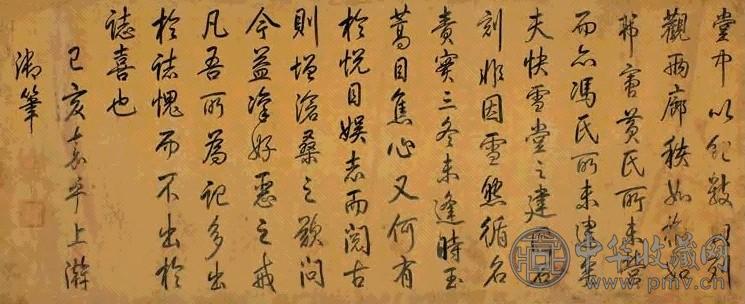 堂中以
觀兩廊秩如
黃氏所未
而亦馮氏所未
夫快雪堂之建石
刻非因雪然循名
責實三冬未逢時玉
蒿目焦心又何有
於悅目娛志而閱古
則增滄桑之歎問
今益凜好惡之戒
凡吾所為記多出
於誌愧而不出於
誌喜也
己亥嘉平上澣
御筆
中华收藏网
www.pmv.cn